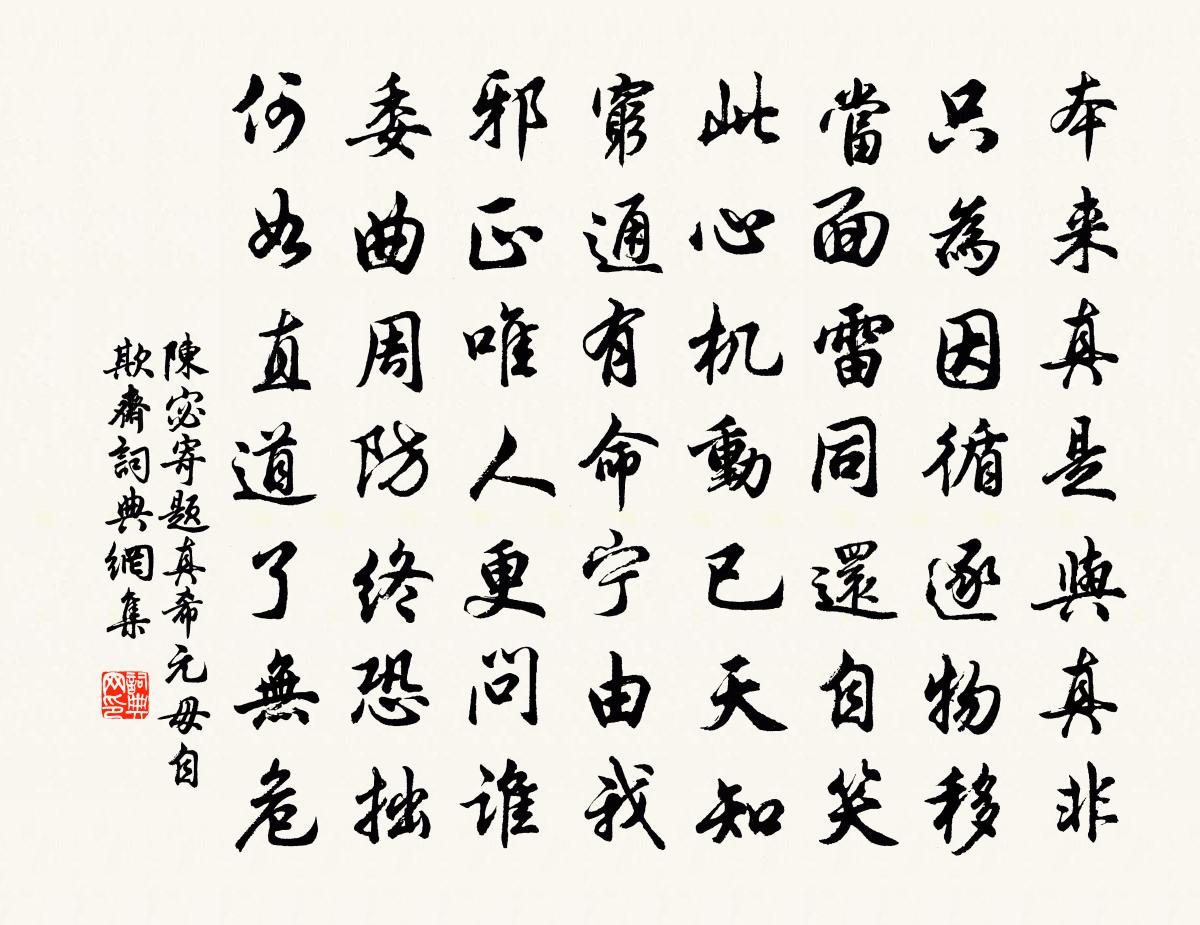 本来真是與真非
只為因循逐物移
當面雷同還自笑
此心机動已天知
窮通有命宁由我
邪正唯人更問谁
委曲周防终恐拙
何如直道了無危
陳宓寄題真希元毋自
欺齋詞典網集
詞典网印